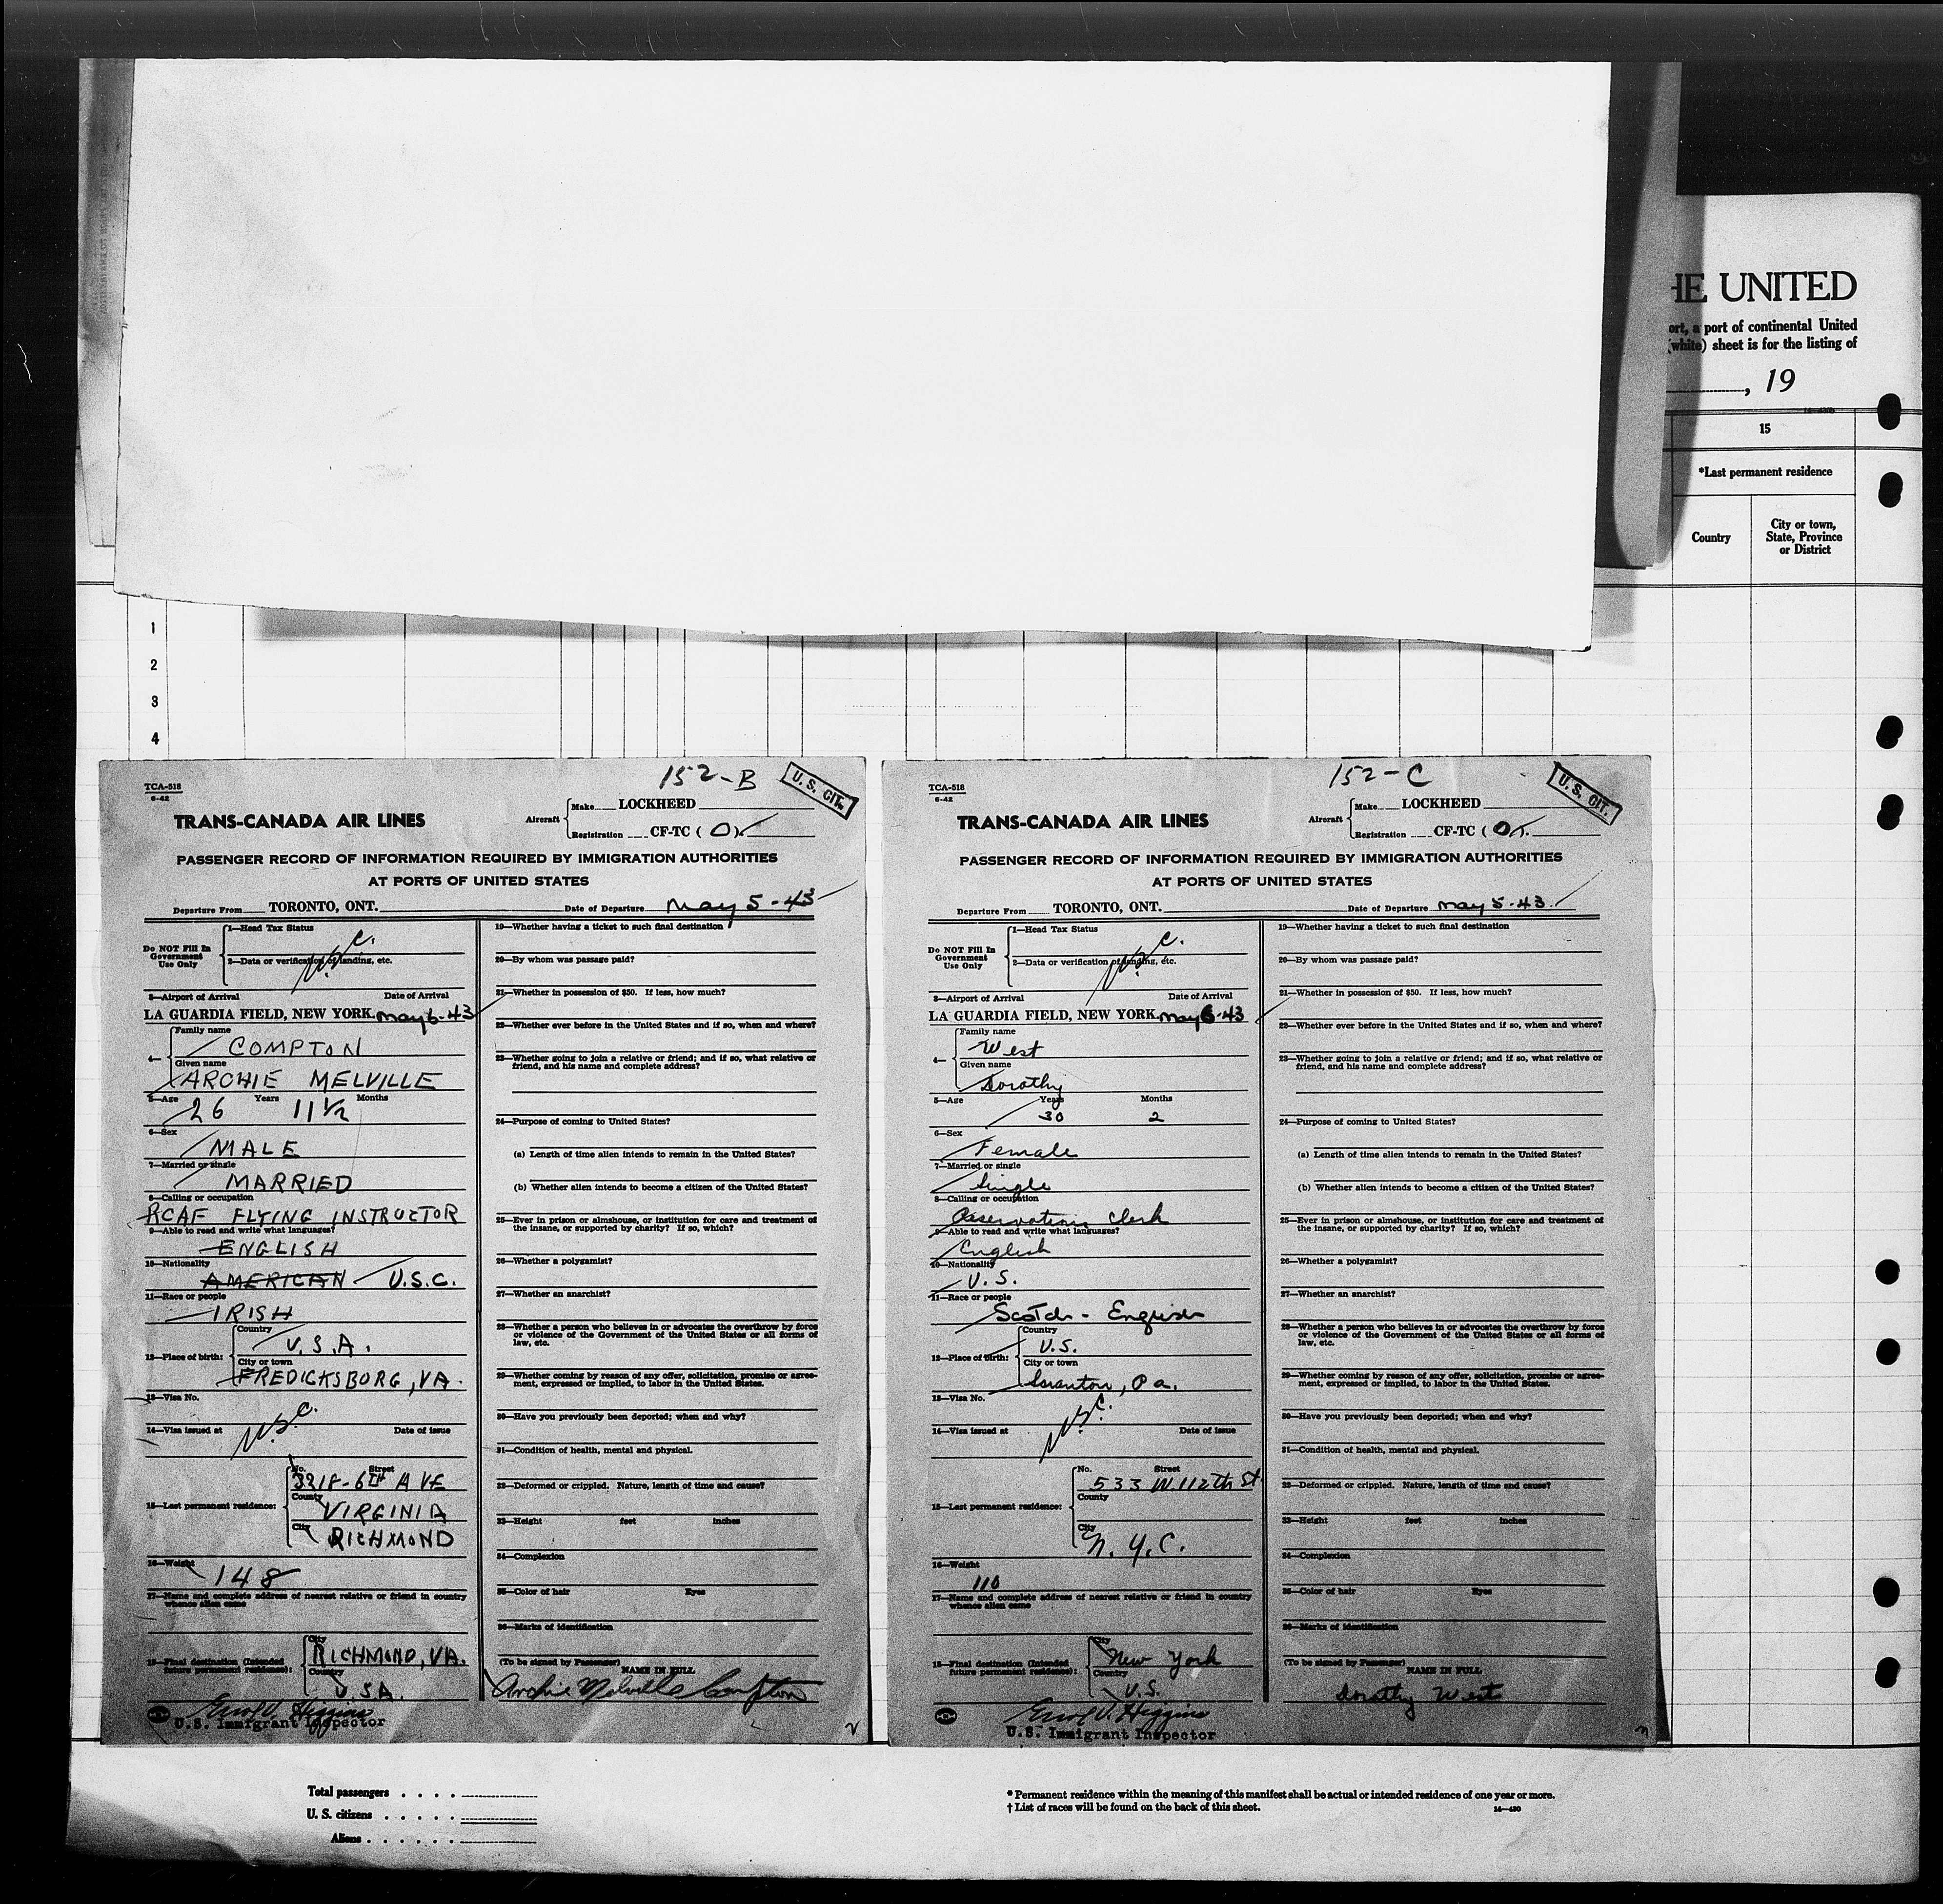 HE UNITED
ort, a port of continental United
(white) sheet is for the listing of
, 19
15
*Last permanent residence
Country
City or town,
State, Province
or District
1
2
3
4
152-B
U.S. CIT.
TCA-518
6-42
TRANS-CANADA AIR LINES
Aircraft
Make LOCKHEED
Registration CF-TC ( O )
PASSENGER RECORD OF INFORMATION REQUIRED BY IMMIGRATION AUTHORITIES
AT PORTS OF UNITED STATES
Departure From TORONTO, ONT. Date of Departure May 5-43
Do NOT Fill In
Government
Use Only
1—Head Tax Status
2—Data or verification of landing, etc.
3—Airport of Arrival Date of Arrival
LA GUARDIA FIELD, NEW YORK. May 6-43
4—
Family name
COMPTON
Given name
ARCHIE MELVILLE
5—Age Years Months
26 11 1/2
6—Sex
MALE
7—Married or single
MARRIED
8—Calling or occupation
RCAF FLYING INSTRUCTOR
9—Able to read and write what languages?
ENGLISH
10—Nationality
AMERICAN U.S.C.
11—Race or people
IRISH
12—Place of birth:
Country
U.S.A.
City or town
FREDICKSBORG, VA.
13—Visa No.
14—Visa issued at Date of issue
15—Last permanent residence:
No. Street
3218-6TH AVE
County
VIRGINIA
City
RICHMOND
16—Weight
148
17—Name and complete address of nearest relative or friend in country
whence alien came
18—Final destination (Intended
future permanent residence):
City
RICHMOND, VA.
Country
U.S.A.
Errol V. Higgins
U.S. Immigrant Inspector
19—Whether having a ticket to such final destination
20—By whom was passage paid?
21—Whether in possession of $50. If less, how much?
22—Whether ever before in the United States and if so, when and where?
23—Whether going to join a relative or friend; and if so, what relative or
friend, and his name and complete address?
24—Purpose of coming to United States?
(a) Length of time alien intends to remain in the United States?
(b) Whether alien intends to become a citizen of the United States?
25—Ever in prison or almshouse, or institution for care and treatment of
the insane, or supported by charity? If so, which?
26—Whether a polygamist?
27—Whether an anarchist?
28—Whether a person who believes in or advocates the overthrow by force
or violence of the Government of the United States or all forms of
law, etc.
29—Whether coming by reason of any offer, solicitation, promise or agree-
ment, expressed or implied, to labor in the United States.
30—Have you previously been deported; when and why?
31—Condition of health, mental and physical.
32—Deformed or crippled. Nature, length of time and cause?
33—Height feet inches
34—Complexion
35—Color of hair Eyes
36—Marks of identification
(To be signed by Passenger)
NAME IN FULL
Archie Melville Compton
152-C
U.S. CIT.
TCA-518
6-42
TRANS-CANADA AIR LINES
Aircraft
Make LOCKHEED
Registration CF-TC ( O ).
PASSENGER RECORD OF INFORMATION REQUIRED BY IMMIGRATION AUTHORITIES
AT PORTS OF UNITED STATES
Departure From TORONTO, ONT. Date of Departure May 5-43.
Do NOT Fill In
Government
Use Only
1—Head Tax Status
2—Data or verification of landing, etc.
3—Airport of Arrival Date of Arrival
LA GUARDIA FIELD, NEW YORK. May 6-43
4—
Family name
West
Given name
Dorothy
5—Age Years Months
30 2
6—Sex
Female
7—Married or single
Single
8—Calling or occupation
Reservations Clerk
9—Able to read and write what languages?
English
10—Nationality
U.S.
11—Race or people
Scotch - English
12—Place of birth:
Country
U.S.
City or town
Scranton, Pa.
13—Visa No.
14—Visa issued at Date of issue
15—Last permanent residence:
No. Street
533 W. 112th St.
County
City
N.Y.C.
16—Weight
110
17—Name and complete address of nearest relative or friend in country
whence alien came
18—Final destination (Intended
future permanent residence):
City
New York
Country
U.S.
Errol V. Higgins
U.S. Immigrant Inspector
19—Whether having a ticket to such final destination
20—By whom was passage paid?
21—Whether in possession of $50. If less, how much?
22—Whether ever before in the United States and if so, when and where?
23—Whether going to join a relative or friend; and if so, what relative or
friend, and his name and complete address?
24—Purpose of coming to United States?
(a) Length of time alien intends to remain in the United States?
(b) Whether alien intends to become a citizen of the United States?
25—Ever in prison or almshouse, or institution for care and treatment of
the insane, or supported by charity? If so, which?
26—Whether a polygamist?
27—Whether an anarchist?
28—Whether a person who believes in or advocates the overthrow by force
or violence of the Government of the United States or all forms of
law, etc.
29—Whether coming by reason of any offer, solicitation, promise or agree-
ment, expressed or implied, to labor in the United States.
30—Have you previously been deported; when and why?
31—Condition of health, mental and physical.
32—Deformed or crippled. Nature, length of time and cause?
33—Height feet inches
34—Complexion
35—Color of hair Eyes
36—Marks of identification
(To be signed by Passenger)
NAME IN FULL
Dorothy West
Total passengers . . . .
U. S. citizens . . . . .
Aliens . . . . . .
* Permanent residence within the meaning of this manifest shall be actual or intended residence of one year or more.
† List of races will be found on the back of this sheet.